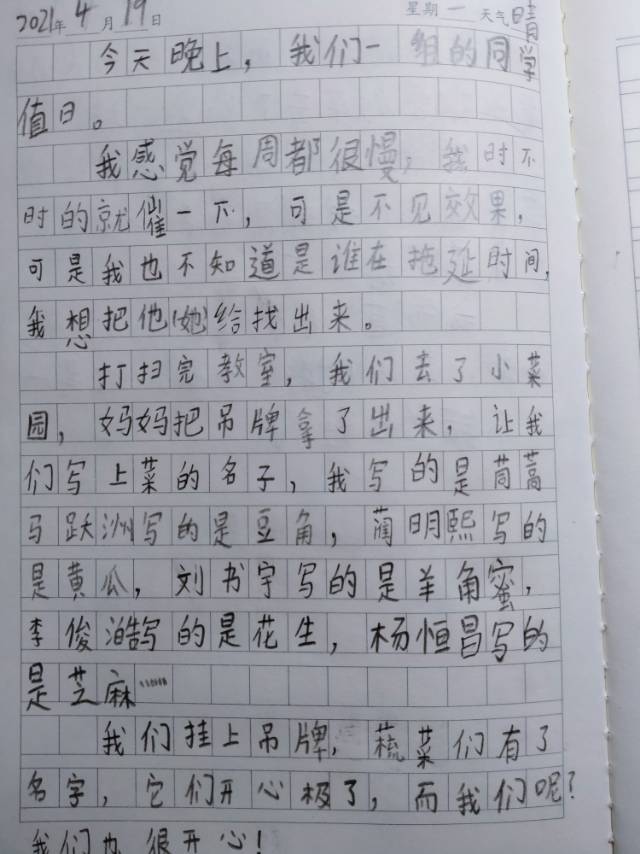 2021年4月19日 星期一 天气晴
今天晚上，我们一组的同学
值日。
我感觉每周都很慢，我时不
时的就催一下，可是不见效果，
可是我也不知道是谁在拖延时间，
我想把他(她)给找出来。
打扫完教室，我们去了小菜
园，妈妈把吊牌拿了出来，让我
们写上菜的名子，我写的是茼蒿
马跃洲写的是豆角，蔺明熙写的
是黄瓜，刘书宇写的是羊角蜜，
李俊澔写的是花生，杨恒昌写的
是芝麻……
我们挂上吊牌，蔬菜们有了
名字，它们开心极了，而我们呢？
我们也很开心！